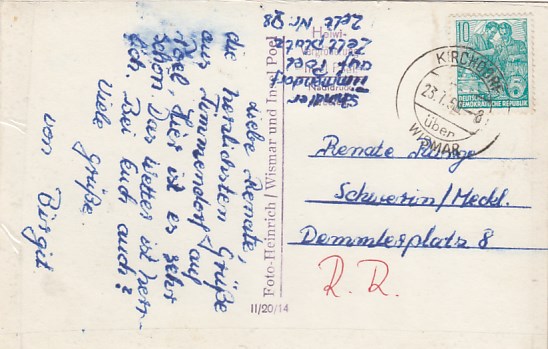 Liebe Renate,
die herzlichsten Grüße
aus Timmendorf auf
Poel. Hier ist es sehr
schön. Das Wetter ist herr-
lich. Bei Euch auch?
Viele Grüße.
von Birgit
Foto-Heinrich / Wismar und Insel Poel
II/20/14
Timmendorf
auf Poel
Zeltplatz
Zelt Nr. 98
10
DEUTSCHE
DEMOKRATISCHE REPUBLIK
KIRCHDORF
über
WISMAR
Renate
Schwerin/Meckl.
Demmlerplatz 8
R. R.